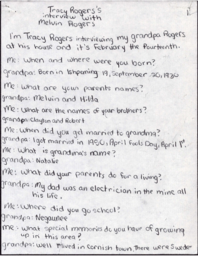 Tracy Rogers's
interview with
Melvin Rogers
I'm Tracy Rogers interviewing my grandpa Rogers
at his house and it's February the fourteenth.
Me: When and where were you born?
grandpa: Born in Ishpeming, September 30, 1930
Me: What are your parents names?
grandpa: Melvin and Hilda
Me: What are the names of your brothers?
grandpa: Clayton and Robert
Me: When did you get married to grandma?
grandpa: I got married in 1956, April Fools Day, April 1st.
Me: What is grandma's name?
grandpa: Natalie
Me: What did your parents do for a living?
grandpa: My dad was an electrician in the mine all
his life.
Me: Where did you go school?
grandpa: Negaunee
Me: What special memories do you have of growing
up in this area?
grandpa: Well I lived in Cornish town. There were Swede